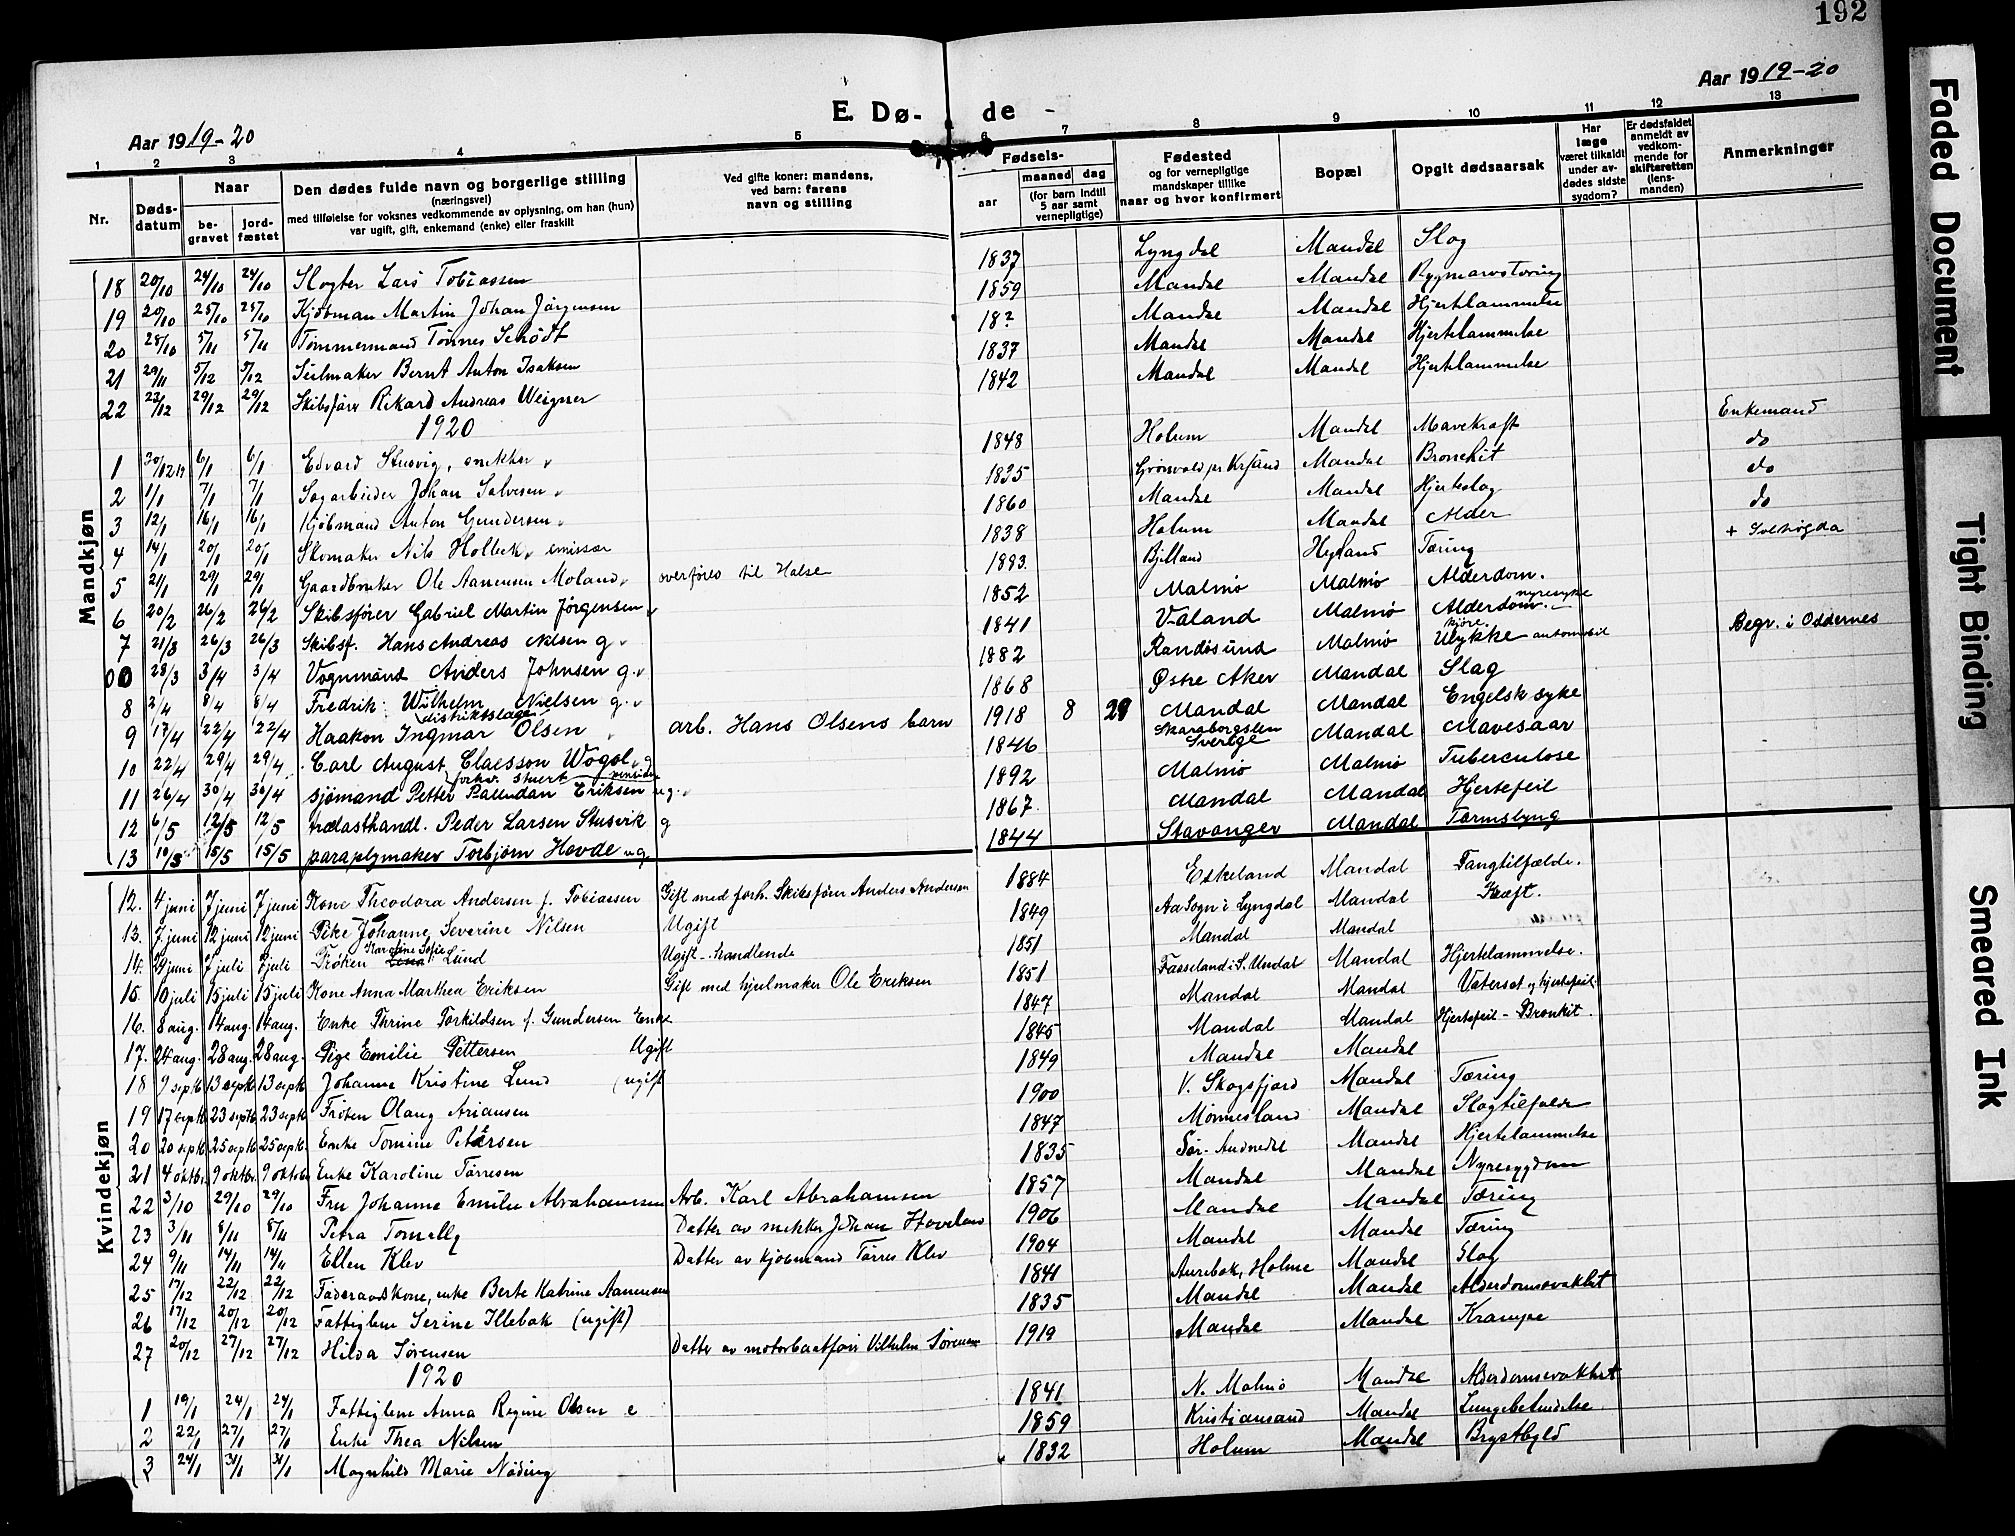 192
Aar 1919-20
E. Dø-de
Aar 1919-20
1 2 3 4 5 6 7 8 9 10 11 12 13
Nr.
Døds-datum
Naar
be-gravet
jord-fæstet
Den dødes fulde navn og borgerlige stilling
(næringsvei)
med tilføielse for voksnes vedkommende av oplysning, om han (hun)
var ugift, gift, enkemand (enke) eller fraskilt
Ved gifte koner: mandens,
ved barn: farens
navn og stilling
Fødsels-
aar
maaned dag
(for barn indtil
5 aar samt
vernepligtige)
Fødested
og for vernepligtige
mandskaper tillike
naar og hvor konfirmert
Bopæl
Opgit dødsaarsak
Har
læge
været tilkaldt
under av-
dødes sidste
sygdom?
Er dødsfaldet
anmeldt av
vedkom-
mende for
skifteretten
(lens-
manden)
Anmerkninger
Mandkjøn
18 20/10 24/10 24/10 Slagter Lars Tobiassen 1837 Lyngdal Mandal Slag
19 20/10 25/10 25/10 Kjøbman Martin Johan Jørgensen 1859 Mandal Mandal Rygmarvstæring
20 28/10 5/11 5/11 Tømmermand Tønnes Schrødt 18? Mandal Mandal Hjertelammelse
21 29/11 5/12 5/12 Seilmaker Bernt Anton Isaksen 1837 Mandal Mandal Hjertelammelse
22 23/12 29/12 29/12 Skibsfører Rikard Andreas Weigner 1842 Mandal Mandal Hjertelammelse
1920
1 30/12 19 6/1 6/1 Edvard Stusvig, snekker 1848 Holum Mandal Mavekræft Enkemand
2 1/1 7/1 7/1 Sagarbeider Johan Salvesen 1835 Grønvold pr Krsand Mandal Bronchit do
3 12/1 16/1 16/1 Kjøbmand Anton Gundersen 1860 Mandal Mandal Hjerteslag do
4 14/1 20/1 20/1 Skomaker Nils Holbek, emissær 1838 Holum Mandal Alder do
5 21/1 29/1 29/1 Gaardbruker Ole Aanensen Moland overføres til Halse 1893 Bjelland Tæring +
6 20/2 26/2 26/2 Skibsfører Gabriel Martin Jørgensen 1852 Malmø Malmø Alderdom.
7 21/3 26/3 26/3 Skibsf. Hans Andreas Nilsen g 1841 Valand Malmø Alderdom. nyresyke
00 28/3 3/4 3/4 Vognmand Anders Johnsen g. 1882 Randøsund Malmø Ulykke kjøre. automobil Begr. i Oddernes
8 2/4 8/4 8/4 Fredrik Wilhelm Nielsen g. 1868 Østre Aker Mandal Slag
9 17/4 22/4 22/4 Haakon Ingmar Olsen arb. Hans Olsens barn 1918 8 29 Mandal Mandal Engelsk syke
10 22/4 29/4 29/4 distriktslæge Carl August Claesson Wogel g 1846 Skaraborgslen Sverige Mandal Mavesaar
11 26/4 30/4 30/4 sjømand Petter Palludan Eriksen forhv. stuert ug. 1892 Malmø Malmø Tuberculose
12 6/5 12/5 12/5 trælasthandl. Peder Larsen Stusvik g 1867 Mandal Mandal Hjertefeil
13 10/5 15/5 15/5 paraplymaker Torbjørn Hovde ug. 1844 Stavanger Mandal Tarmslyng
Kvindekjøn
12. 4 juni 7 juni 7 juni Kone Theodora Andersen f. Tobiassen Gift med forh. Skibsfører Anders Andersen 1884 Eskeland Mandal Tangtilfælde.
13. 7 juni 12 juni 12 juni Pike Johanne Severine Nilsen Ugift 1849 Aa Sogn i Lyngdal Mandal Kræft.
14. 24 juni 7 juli 7 juli Frøken Karoline Sofie Lund Ugift - handlende 1851 Mandal Mandal
15. 10 juli 15 juli 15 juli Kone Anna Marthea Eriksen Gift med hjulmaker Ole Eriksen 1851 Fasseland i S. Undal Mandal Hjertelammelse.
16. 8 aug. 14 aug. 14 aug. Enke Thrine Torkildsen f. Gundersen Enke 1847 Mandal Mandal Vatersot og hjertefeil.
17. 24 aug. 28 aug. 28 aug. Pige Emilie Pettersen Ugift 1845 Mandal Mandal Hjertefeil - Bronkit.
18 9 septb 13 septb 13 septb Johanne Kristine Lund (ugift 1849 Mandal Mandal
19 17 septb 23 septb 23 septb Frøken Olaug Ariansen 1900 V. Skogsfjord Mandal Tæring
20 20 septb 25 septb 25 septb Enke Tomine Petersen 1847 Mønnesland Mandal Slagtilfælde
21 4 oktbr 9 oktbr 9 oktbr Enke Karoline Tørresen 1835 Sør-Audnedal Mandal Hjertelammelse
22 3/10 29/10 29/10 Fru Johanne Emilie Abrahamsen Arb. Karl Abrahamsen 1857 Mandal Mandal Nyresygdom
23 3/11 8/11 8/11 Petra Datter av snekker Johan Hoveland 1906 Mandal Mandal Tæring
24 9/11 14/11 14/11 Ellen Klev Datter av kjøbmand Tørres Klev 1904 Mandal Mandal Tæring
25 17/12 22/12 22/12 Føderaadskone, enke Berte Katrine Aanensen 1841 Aurebæk, Holme Mandal Slag
26 17/12 20/12 20/12 Fattiglem Serine Illebæk (ugift) 1835 Mandal Mandal Alderdomssvakhet
27 20/12 27/12 27/12 Hilda Sørensen Datter av motorbaatfører Vilhelm Sørensen 1919 Mandal Mandal Krampe
1920
1 19/1 24/1 24/1 Fattiglem Anna Regine Olsen e 1841 N. Malmø Mandal Alderdomssvakhet
2 22/1 27/1 27/1 Enke Thea Nilsen 1859 Kristiansand Mandal Lungebetændelse
3 24/1 31/1 31/1 Magnhild Marie Nøding 1832 Holum Mandal Brystbyld
Faded Document
Tight Binding
Smeared Ink